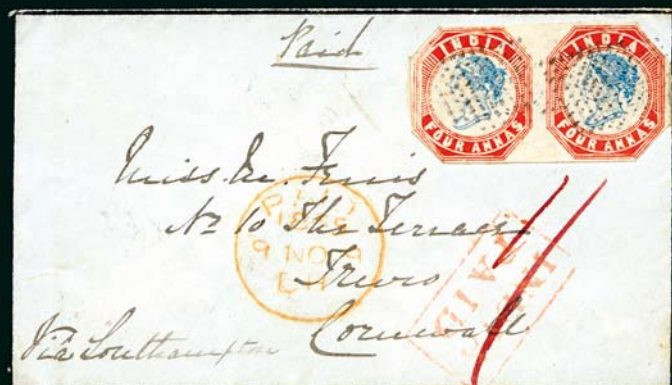 Paid
INDIA
FOUR ANNAS
INDIA
FOUR ANNAS
Miss
No 10 The Terrace
Truro
Cornwall
Via Southampton
PAID
9 NO 9
PAID